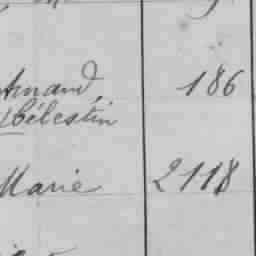 Amand, 186
Célestin
Marie 2118